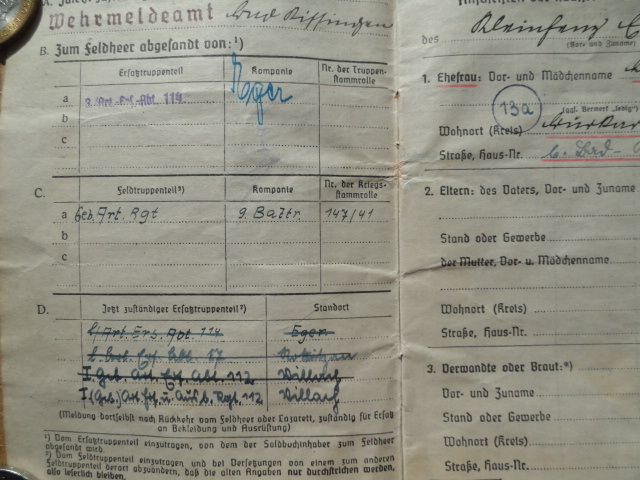 Wehrmeldeamt Bad Kissingen
B. Zum Feldheer abgesandt von:¹)
Ersatztruppenteil
Kompanie
Nr. der Truppen-
stammrolle
a 3./Art.-Ers.-Abt. 114 Eger
b
c
C.
Feldtruppenteil²)
Kompanie
Nr. der Kriegs-
stammrolle
a Geb. Art. Rgt 9. Battr. 147/41
b
c
D.
Jetzt zuständiger Ersatztruppenteil²)
Standort
Art. Ers. Abt. 114 Eger
Ers. Abt. 17
I. Geb. Art. Ers. Abt. 112 Villach
I. (Geb.) Art. Ers. u. Ausb. Rgt. 112 Villach
(Meldung dortselbst nach Rückkehr vom Feldheer oder Lazarett, zuständig für Ersatz
an Bekleidung und Ausrüstung)
¹) Vom Ersatztruppenteil einzutragen, von dem der Soldbuchinhaber zum Feldheer
abgesandt wird.
²) Vom Feldtruppenteil einzutragen und bei Versetzungen von einem zum anderen
Feldtruppenteil derart abzuändern, daß die alten Angaben nur durchstrichen werden,
also leserlich bleiben.
des
(Vor- und Zuname)
1. Ehefrau: Vor- und Mädchenname
(ggf. Vermerk „ledig“)
13a
Wohnort (Kreis)
Straße, Haus-Nr.
2. Eltern: des Vaters, Vor- und Zuname
Stand oder Gewerbe
der Mutter, Vor- u. Mädchenname
Wohnort (Kreis)
Straße, Haus-Nr.
3. Verwandte oder Braut:*)
Vor- und Zuname
Stand oder Gewerbe
Wohnort (Kreis)
Straße, Haus-Nr.